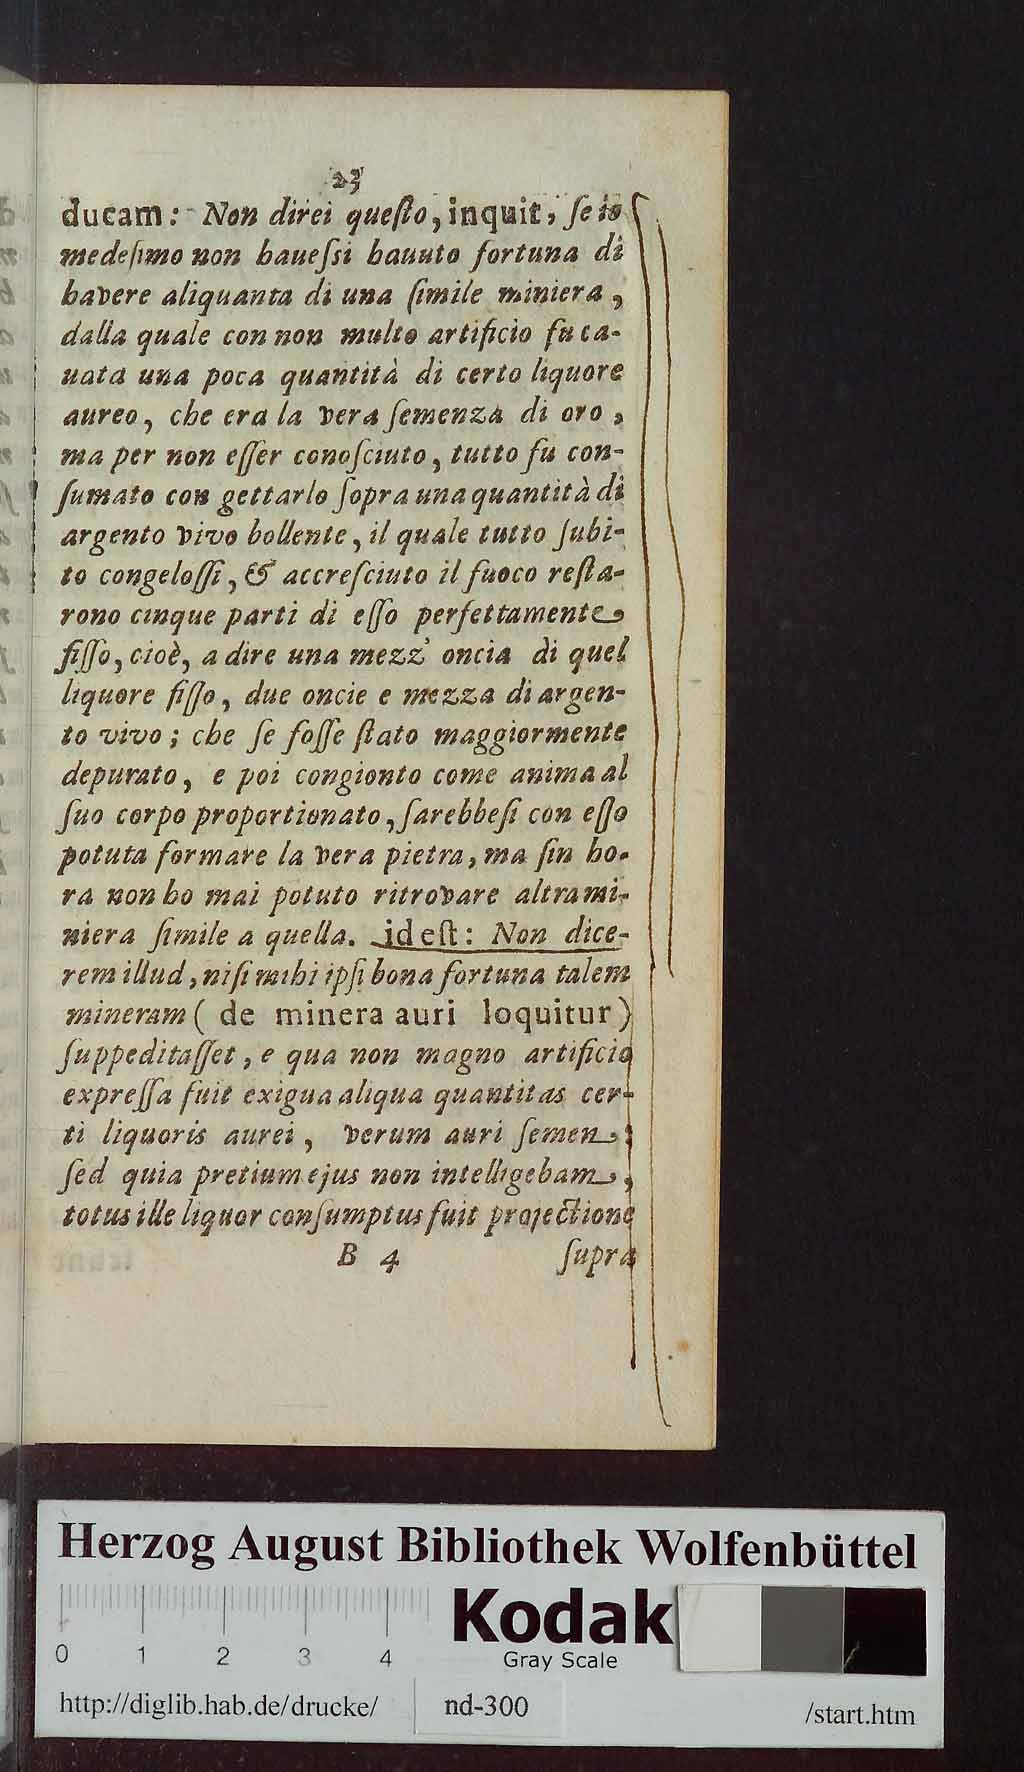 23
ducam: Non direi queſto, inquit, ſe io
medeſimo non haueſsi hauuto fortuna di
havere aliquanta di una ſimile miniera,
dalla quale con non multo artificio fu ca-
uata una poca quantità di certo liquore
aureo, che era la vera ſemenza di oro,
ma per non eſſer conoſciuto, tutto fu con-
ſumato con gettarlo ſopra una quantità di
argento vivo bollente, il quale tutto ſubi-
to congeloſſi, & accreſciuto il fuoco reſta-
rono cinque parti di eſſo perfettamente
fiſſo, cioè, a dire una mezz' oncia di quel
liquore fiſſo, due oncie e mezza di argen-
to vivo; che ſe foſſe ſtato maggiormente
depurato, e poi congionto come anima al
ſuo corpo proportionato, ſarebbeſi con eſſo
potuta formare la vera pietra, ma ſin ho-
ra non ho mai potuto ritrovare altra mi-
niera ſimile a quella. id eſt: Non dice-
rem illud, niſi mihi ipſi bona fortuna talem
mineram ( de minera auri loquitur )
ſuppeditaſſet, e qua non magno artificio
expreſſa fuit exigua aliqua quantitas cer-
ti liquoris aurei, verum auri ſemen:
ſed quia pretium ejus non intelligebam,
totus ille liquor conſumptus fuit projectione
B 4 ſupra
Herzog August Bibliothek Wolfenbüttel
Kodak
Gray Scale
0 1 2 3 4
http://diglib.hab.de/drucke/ nd-300 /start.htm